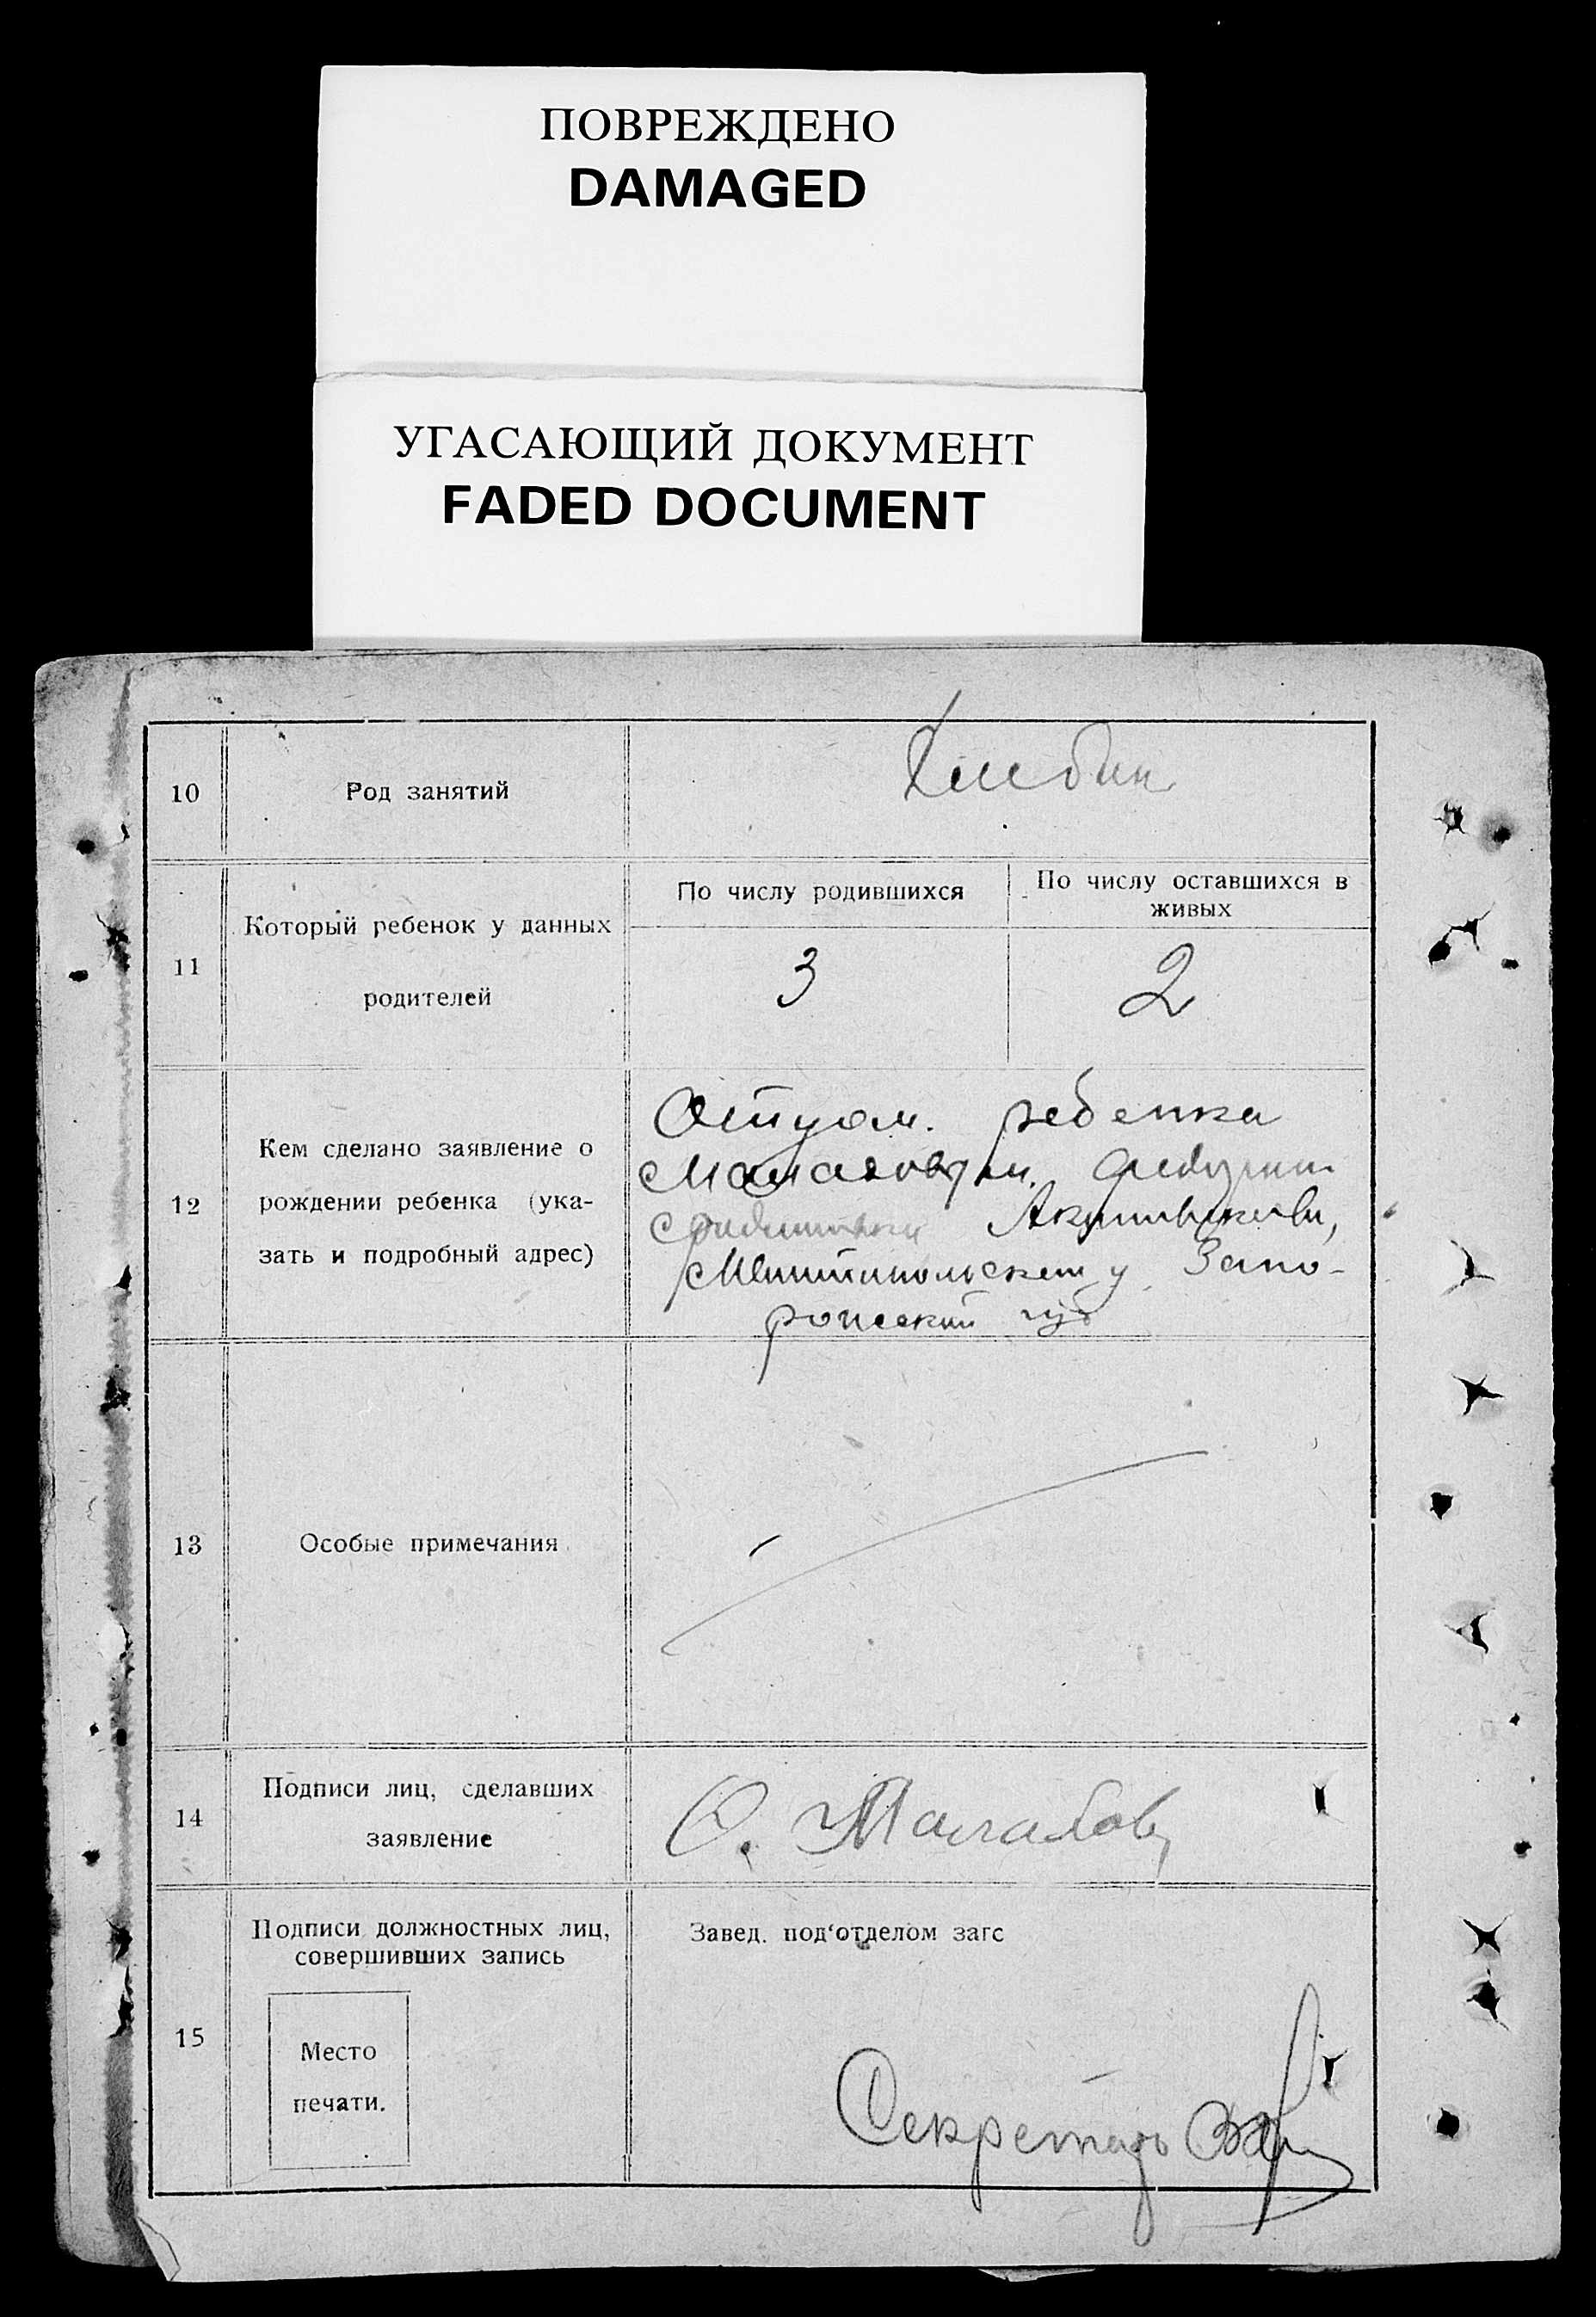 ПОВРЕЖДЕНО
DAMAGED
УГАСАЮЩИЙ ДОКУМЕНТ
FADED DOCUMENT
10
Род занятий
11
Который ребенок у данных
родителей
По числу родившихся
По числу оставшихся в
живых
3
2
12
Кем сделано заявление о
рождении ребенка (ука-
зать и подробный адрес)
Отцом. ребенка
Акимовки,
Мелитопольском у. Запо-
рожский губ
13
Особые примечания
14
Подписи лиц, сделавших
заявление
15
Подписи должностных лиц,
совершивших запись
Место
печати.
Завед. под'отделом загс
Секретарь